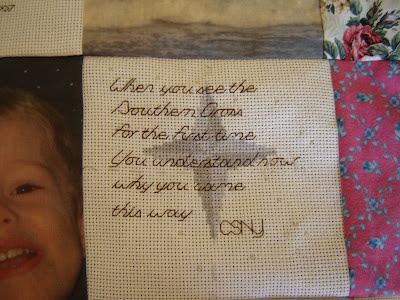 When you see the
Southern Cross
For the first time
You understand now
why you came
this way
CSNY